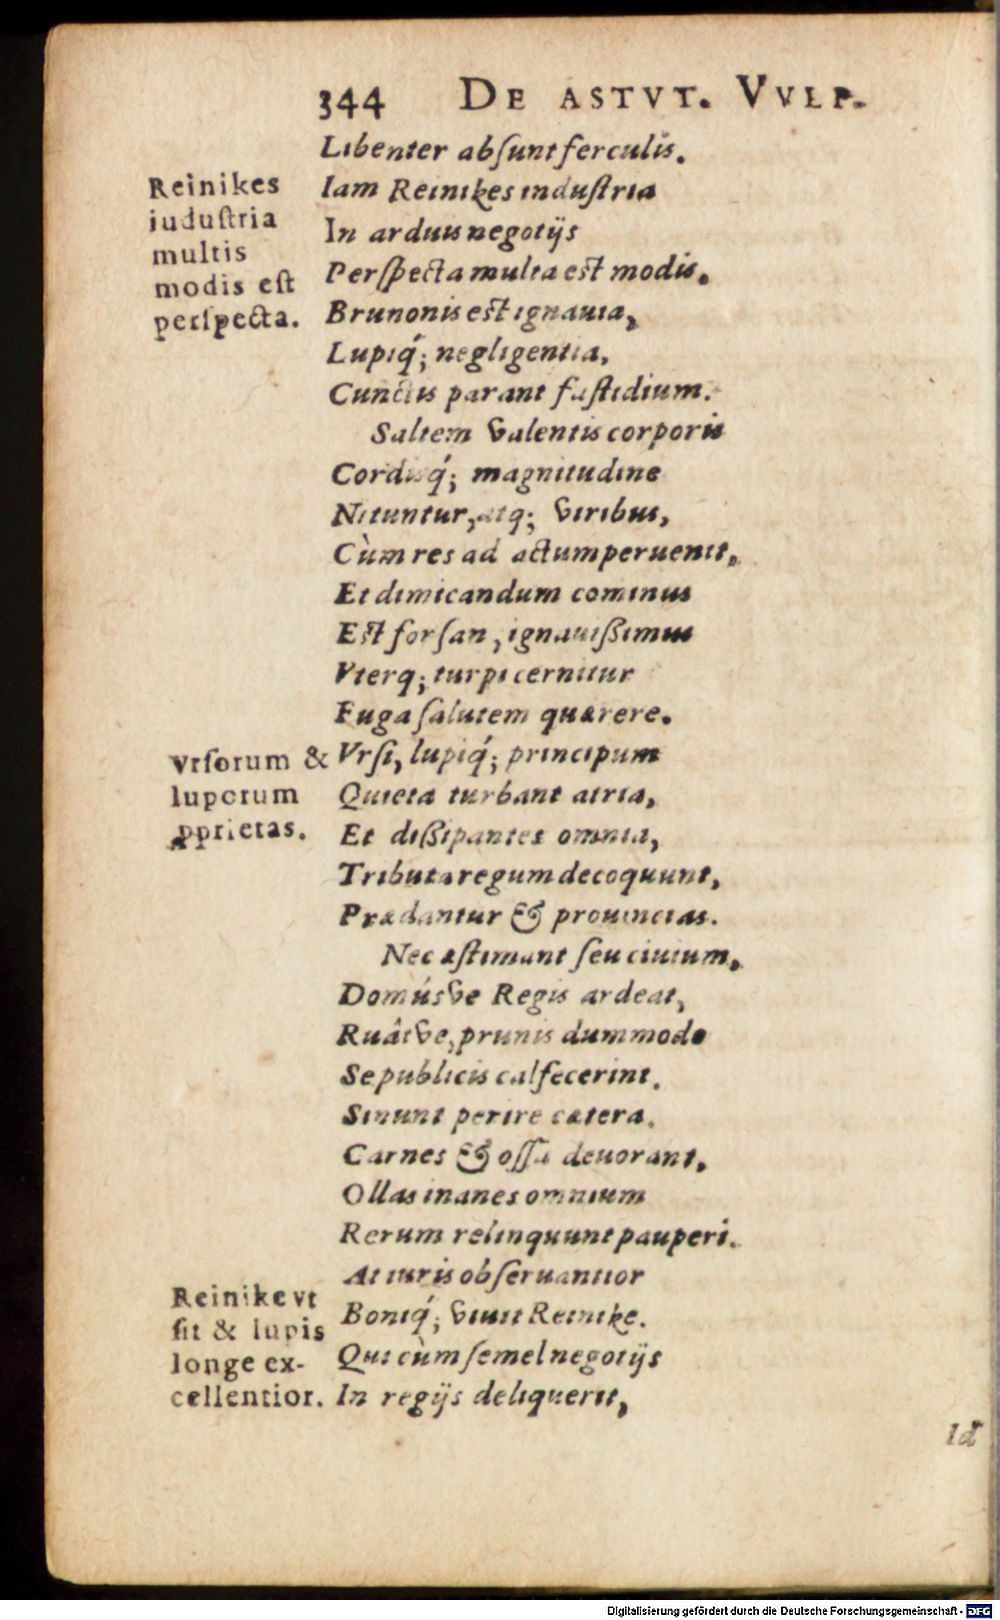 344 DE ASTVT. VVLP.
Libenter absunt ferculis.
Reinikes
iudustria
multis
modis est
perspecta.
Iam Reinikes industria
In arduis negotijs
Perspecta multa est modis.
Brunonis est ignauia,
Lupiq́; negligentia,
Cunctis parant fastidium.
Saltem valentis corporis
Cordisq́; magnitudine
Nituntur, atq; viribus,
Cùm res ad actum peruenit,
Et dimicandum cominus
Est forsan, ignauißimus
Vterq; turpi cernitur
Fuga salutem quærere.
Vrsorum &
luporum
ꝓprietas.
Vrsi, lupiq́; principum
Quieta turbant atria,
Et dißipantes omnia,
Tributa regum decoquunt,
Prædantur & prouincias.
Nec æstimant seu ciuium,
Domúsve Regis ardeat,
Ruâtve, prunis dummodo
Se publicis calfecerint.
Sinunt perire cætera.
Carnes & ossa deuorant,
Ollas inanes omnium
Rerum relinquunt pauperi.
Reinike vt
sit & lupis
longe ex-
cellentior.
At iuris obseruantior
Boniq́; viuit Reinike.
Qui cùm semel negotijs
In regijs deliquerit,
Id
Digitalisierung gefördert durch die Deutsche Forschungsgemeinschaft - DFG